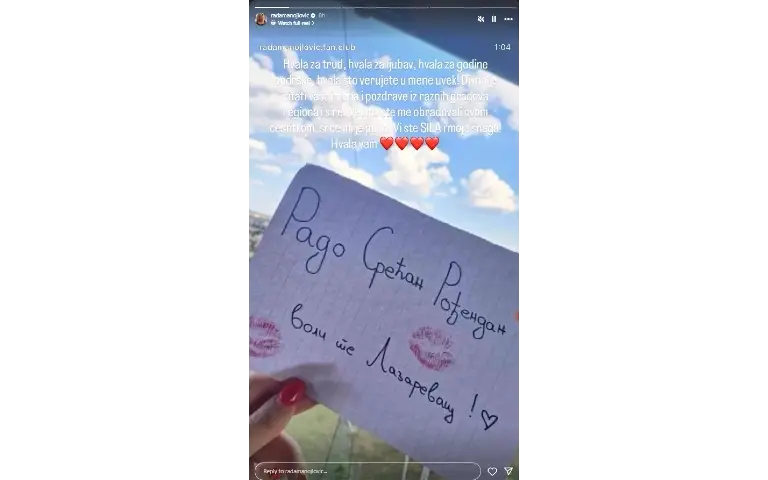 radamanojlovic 6h
Watch full reel >
radamanojlovic.fan.club 1:04
Hvala za trud, hvala za ljubav, hvala za godine
hvala što verujete u mene uvek!
i pozdrave iz raznih
ste me obradovali ovom
Vi ste SILA i moja snaga.
Hvala vam ❤️❤️❤️❤️
Радо Срећан Рођендан
воли те Лазаревац! ♡
Reply to radamanojlovic...